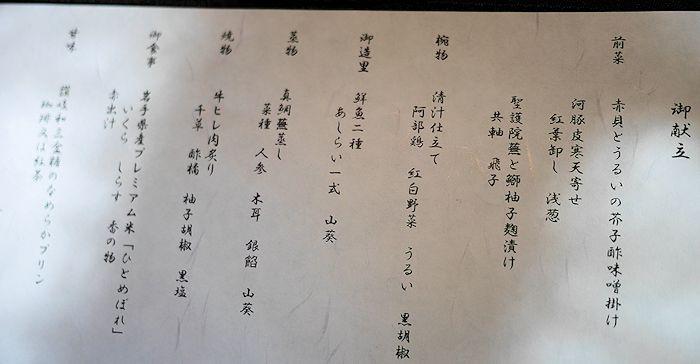 御献立
前菜 赤貝とうるいの芥子酢味噌掛け
河豚皮寒天寄せ
紅葉卸し 浅葱
聖護院蕪と鰤柚子麹漬け
共軸 飛子
椀物 清汁仕立て
阿部鶏 紅白野菜 うるい 黒胡椒
御造里 鮮魚二種
あしらい一式 山葵
蒸物 真鯛蕪蒸し
菜種 人参 木耳 銀餡 山葵
焼物 牛ヒレ肉炙り
千草 酢橘 柚子胡椒 黒塩
御食事 岩手県産プレミアム米「ひとめぼれ」
いくら しらす 香の物
赤出汁
甘味 讃岐和三盆糖のなめらかプリン
珈琲又は紅茶